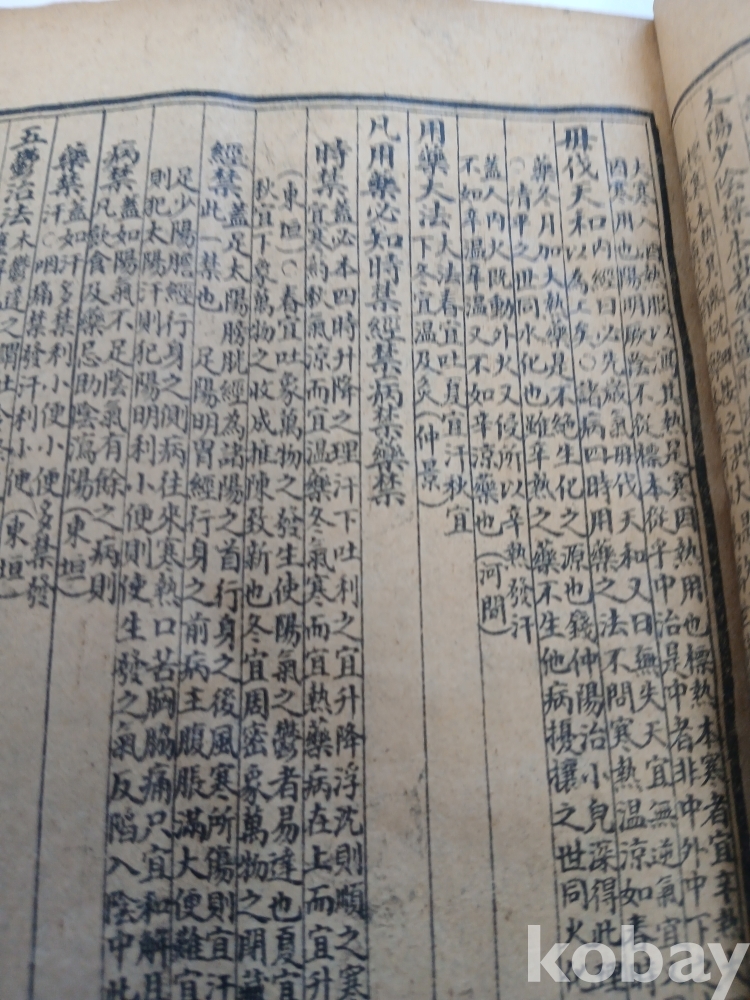 酒熱服以酒其熱是寒因熱用也標熱本寒者宜辛熱
因寒用也陽明厥陰不從標本從乎中治是中者非中外中下
毋伐天和內經曰必先歲氣毋伐天和又曰無失天宜無逆氣宜
以為工矣○諸病四時用藥之法不問寒熱溫涼如春
藥冬月加大熱藥是不絕生化之源也錢仲陽治小兒深得此理
○清平之世同水化也雖辛熱之藥不生他病擾攘之世同火化
蓋人內火既動外火又侵所以辛熱發汗
不如辛溫辛溫又不如辛涼藥也(河間)
用藥大法大法春宜吐夏宜汗秋宜
下冬宜溫及灸(仲景)
凡用藥必知時禁經禁病禁藥禁
時禁蓋必本四時升降之理汗下吐利之宜升降浮沉則順之寒
宜寒約秋氣涼而宜溫藥冬氣寒而宜熱藥病在上而宜升
(東垣)○春宜吐象萬物之發生使陽氣之鬱者易達也夏宜
秋宜下象萬物之收成推陳致新也冬宜周密象萬物之閉藏
經禁蓋足太陽膀胱經為諸陽之首行身之後風寒所傷則宜汗
此一禁也 足陽明胃經行身之前病主腹脹滿大便難宜
足少陽膽經行身之側病往來寒熱口苦胸脇痛只宜和解且
則犯太陽汗則犯陽明利小便則使生發之氣反陷入陰中此
病禁蓋如陽氣不足陰氣有餘之病則
凡飲食及藥忌助陰瀉陽(東垣)
藥禁蓋如汗多禁利小便小便多禁發
汗○咽痛禁發汗利小便(東垣)
五鬱治法木鬱達之謂吐令
kobay